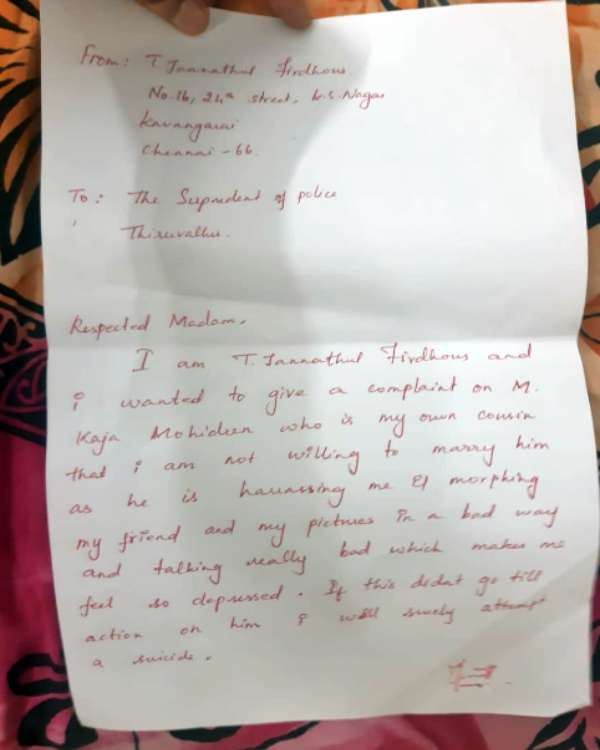 From: T Jannathul Firdhous
No. 16, 24th street, K.S. Nagar
Kavangarai
Chennai - 66.
To: The Suprudent of police
Thiruvallu.
Respected Madam,
I am T. Jannathul Firdhous and
i wanted to give a complaint on M.
Kaja Mohideen who is my own cousin
that i am not willing to marry him
as he is harrassing me & morphing
my friend and my pictures in a bad way
and talking really bad which makes me
feel so depressed. If this didnt go till
action on him i will surely attempt
a suicide.